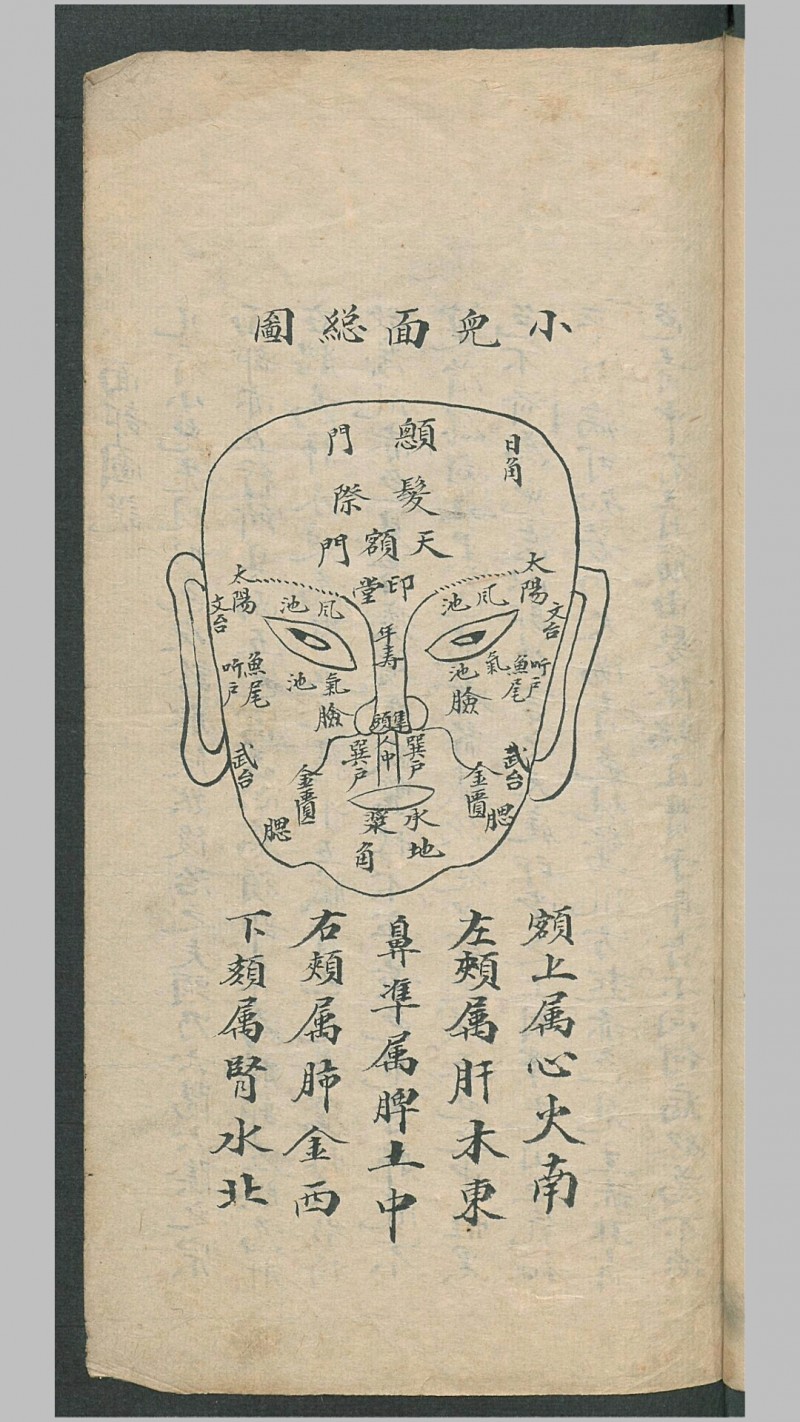 小兒面総圖
顖門
日角
髮際
天門
額
印堂
太陽
太陽
文台
文台
風池
風池
年寿
氣池
氣池
魚尾
魚尾
听户
听户
臉
臉
人中
巽户
巽户
武台
武台
金匱
金匱
腮
腮
承
地角
額上属心火南
左頰属肝木東
鼻準属脾土中
右頰属肺金西
下頦属腎水北